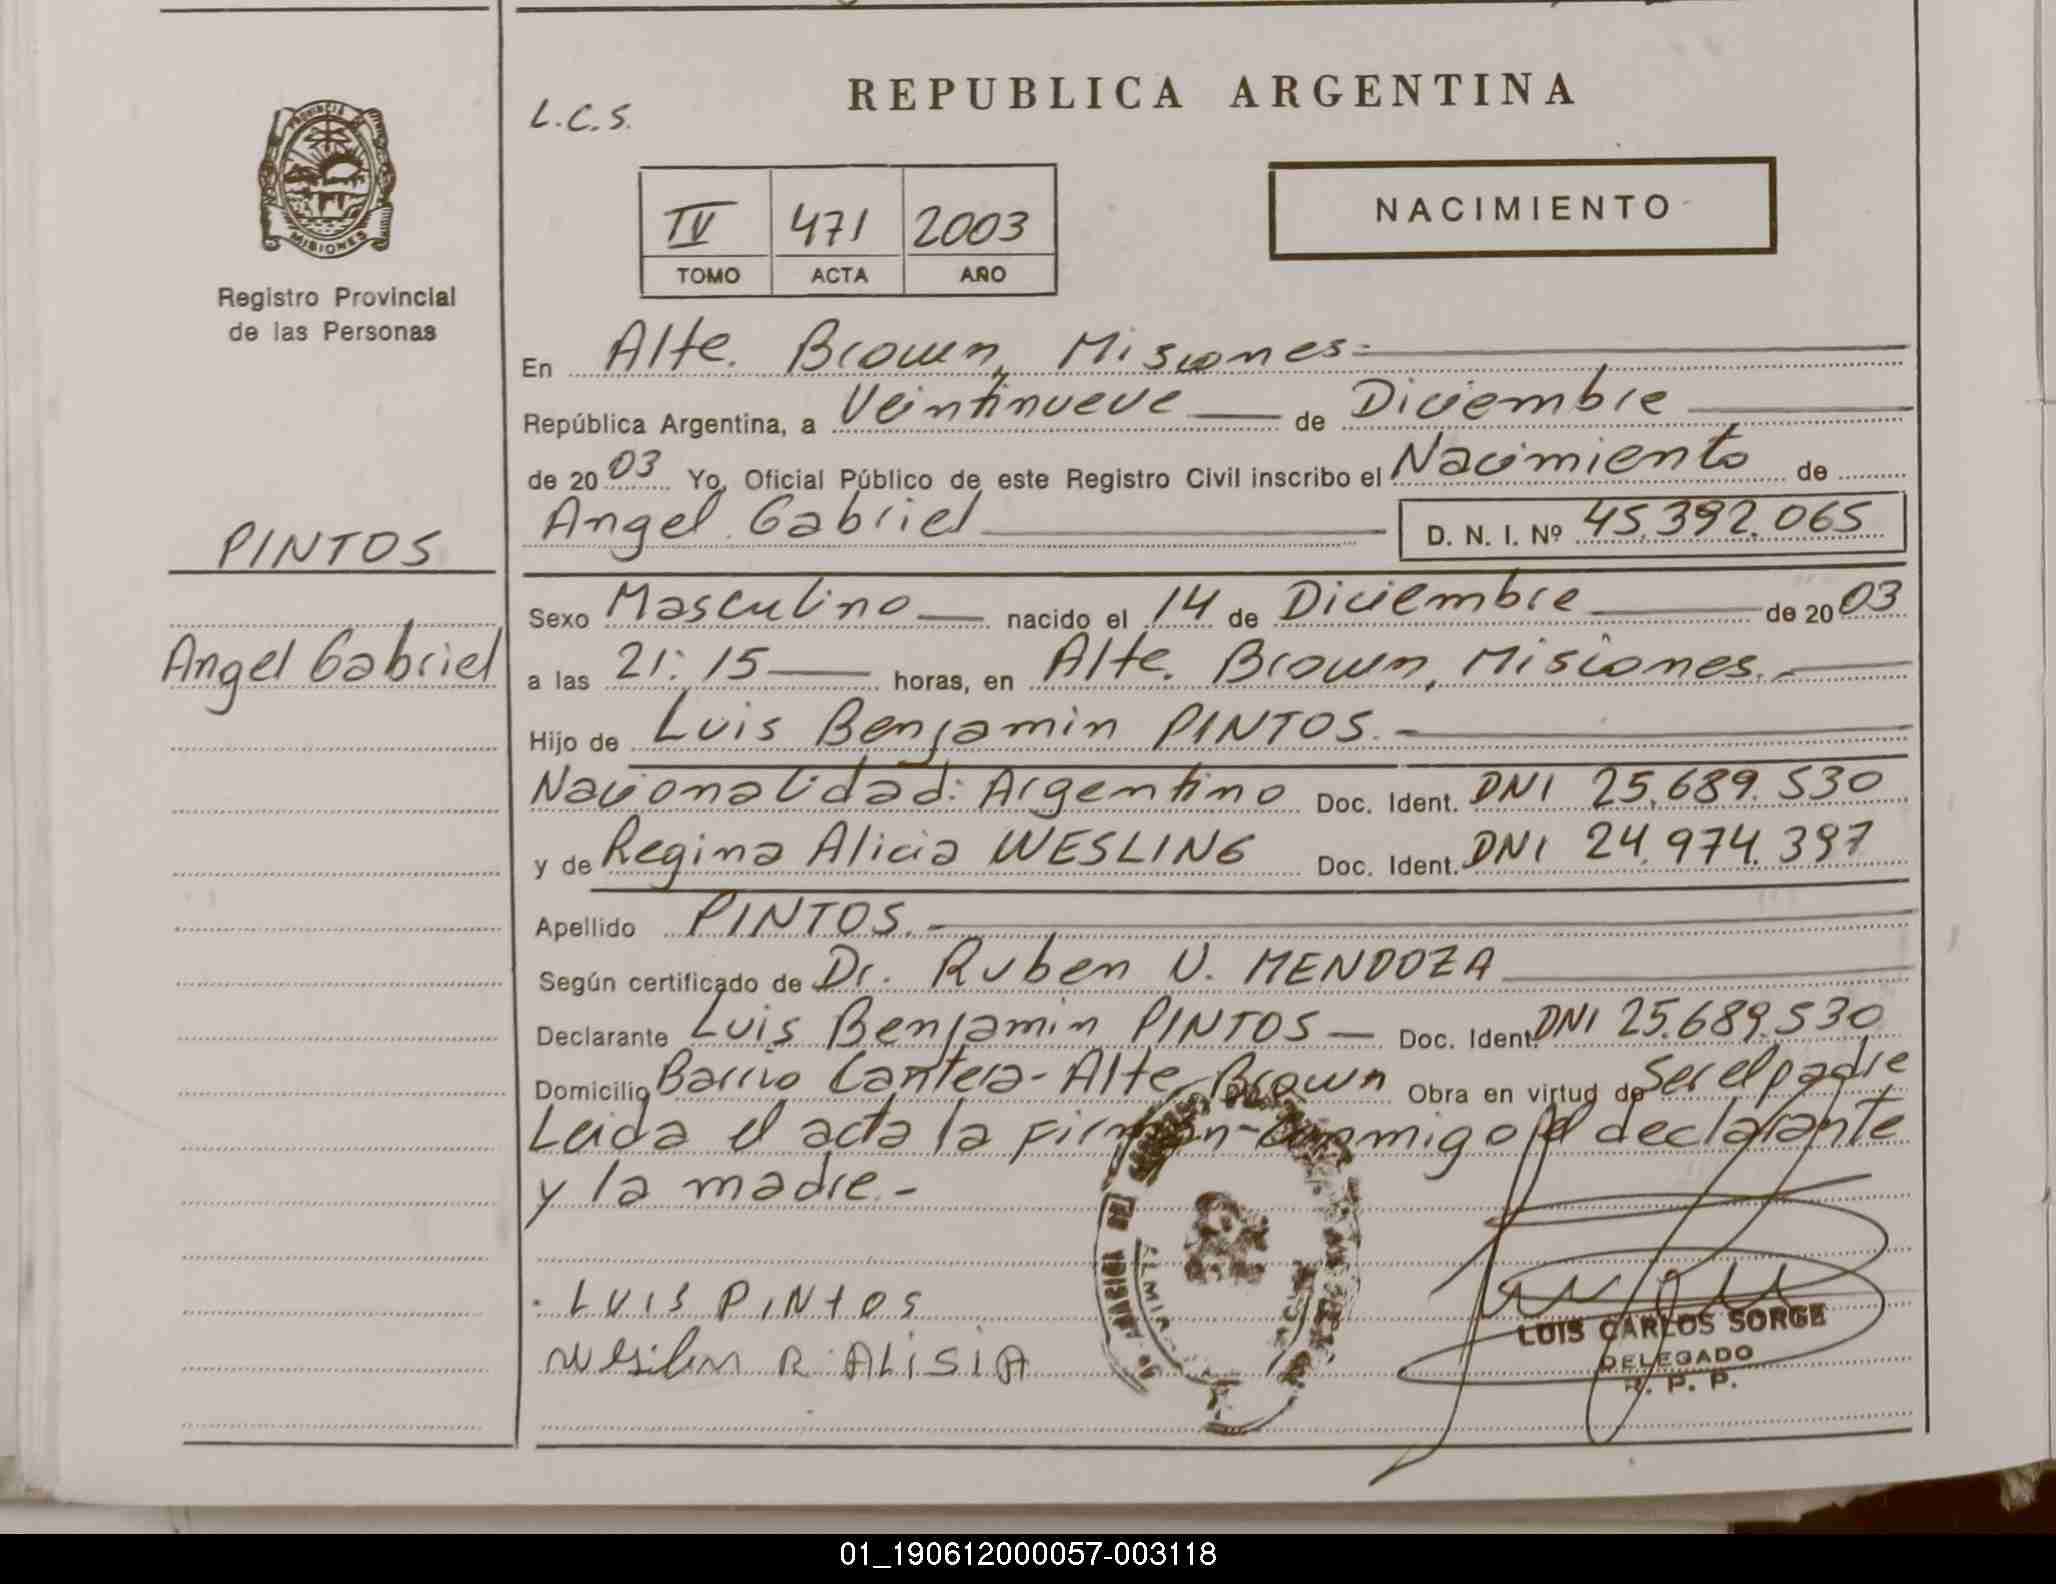 L.C.S.
REPUBLICA ARGENTINA
PROVINCIA DE
MISIONES
Registro Provincial
de las Personas
IV 471 2003
TOMO ACTA AÑO
NACIMIENTO
En Alte. Brown, Misiones.
República Argentina, a Veintinueve de Diciembre
de 2003 Yo, Oficial Público de este Registro Civil inscribo el Nacimiento de
Angel Gabriel D. N. I. Nº 45.392.065
PINTOS
Angel Gabriel
Sexo Masculino nacido el 14 de Diciembre de 2003
a las 21:15 horas, en Alte. Brown, Misiones.-
Hijo de Luis Benjamin PINTOS.-
Nacionalidad: Argentino Doc. Ident. DNI 25.689.530
y de Regina Alicia WESLING Doc. Ident. DNI 24.974.397
Apellido PINTOS.-
Según certificado de Dr. Ruben V. MENDOZA
Declarante Luis Benjamin PINTOS Doc. Ident. DNI 25.689.530
Domicilio Barrio Cantera - Alte. Brown Obra en virtud de Ser el padre
Leida el acta la firman conmigo el declarante
y la madre.-
LUIS PINTOS
R. ALISIA
LUIS CARLOS SORGE
DELEGADO
R. P. P.
01_190612000057-003118